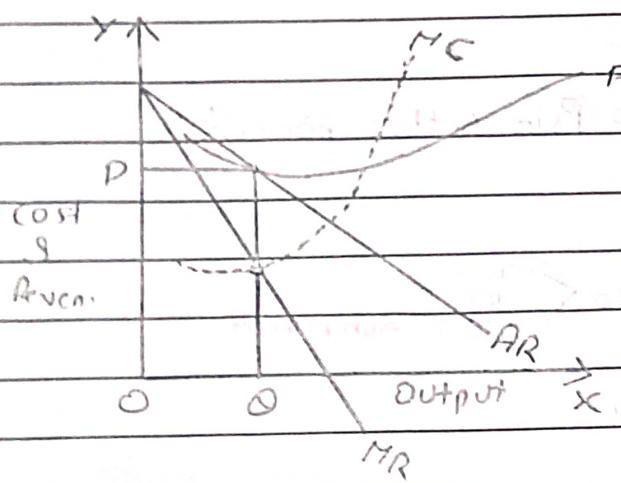 Y
MC
P
Cost
&
Reven.
AR
O
Q
Output
X
MR